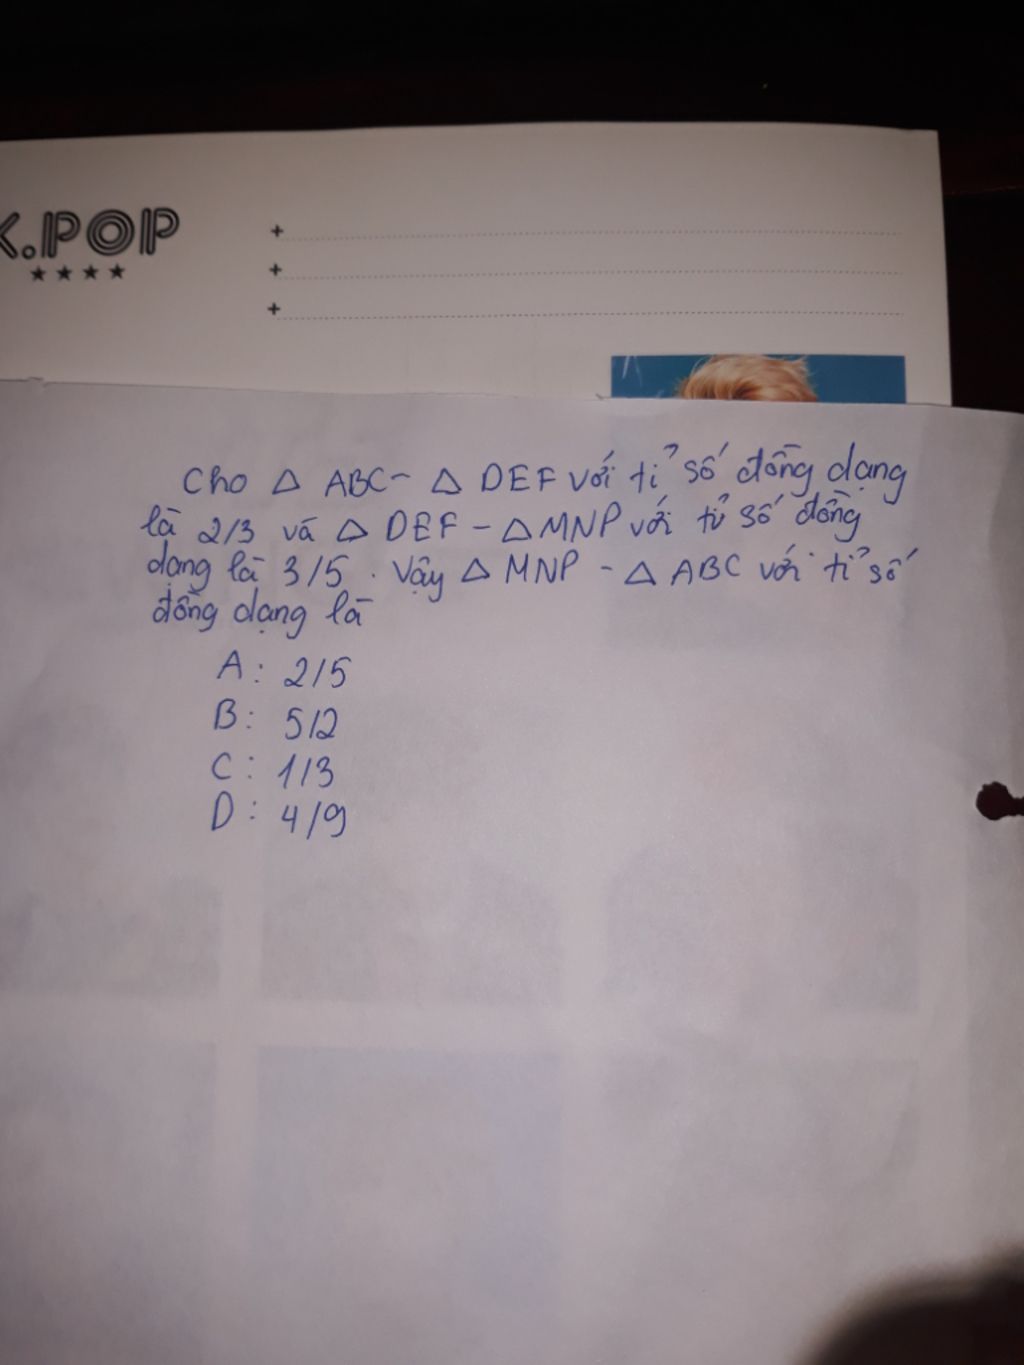 K.POP
★★★★
+
+
+
Cho △ ABC ~ △ DEF với tỉ số đồng dạng
là 2/3 và △ DEF - △ MNP với tỉ số đồng
dạng là 3/5. Vậy △ MNP - △ ABC với tỉ số
đồng dạng là
A: 2/5
B: 5/2
C: 1/3
D: 4/9